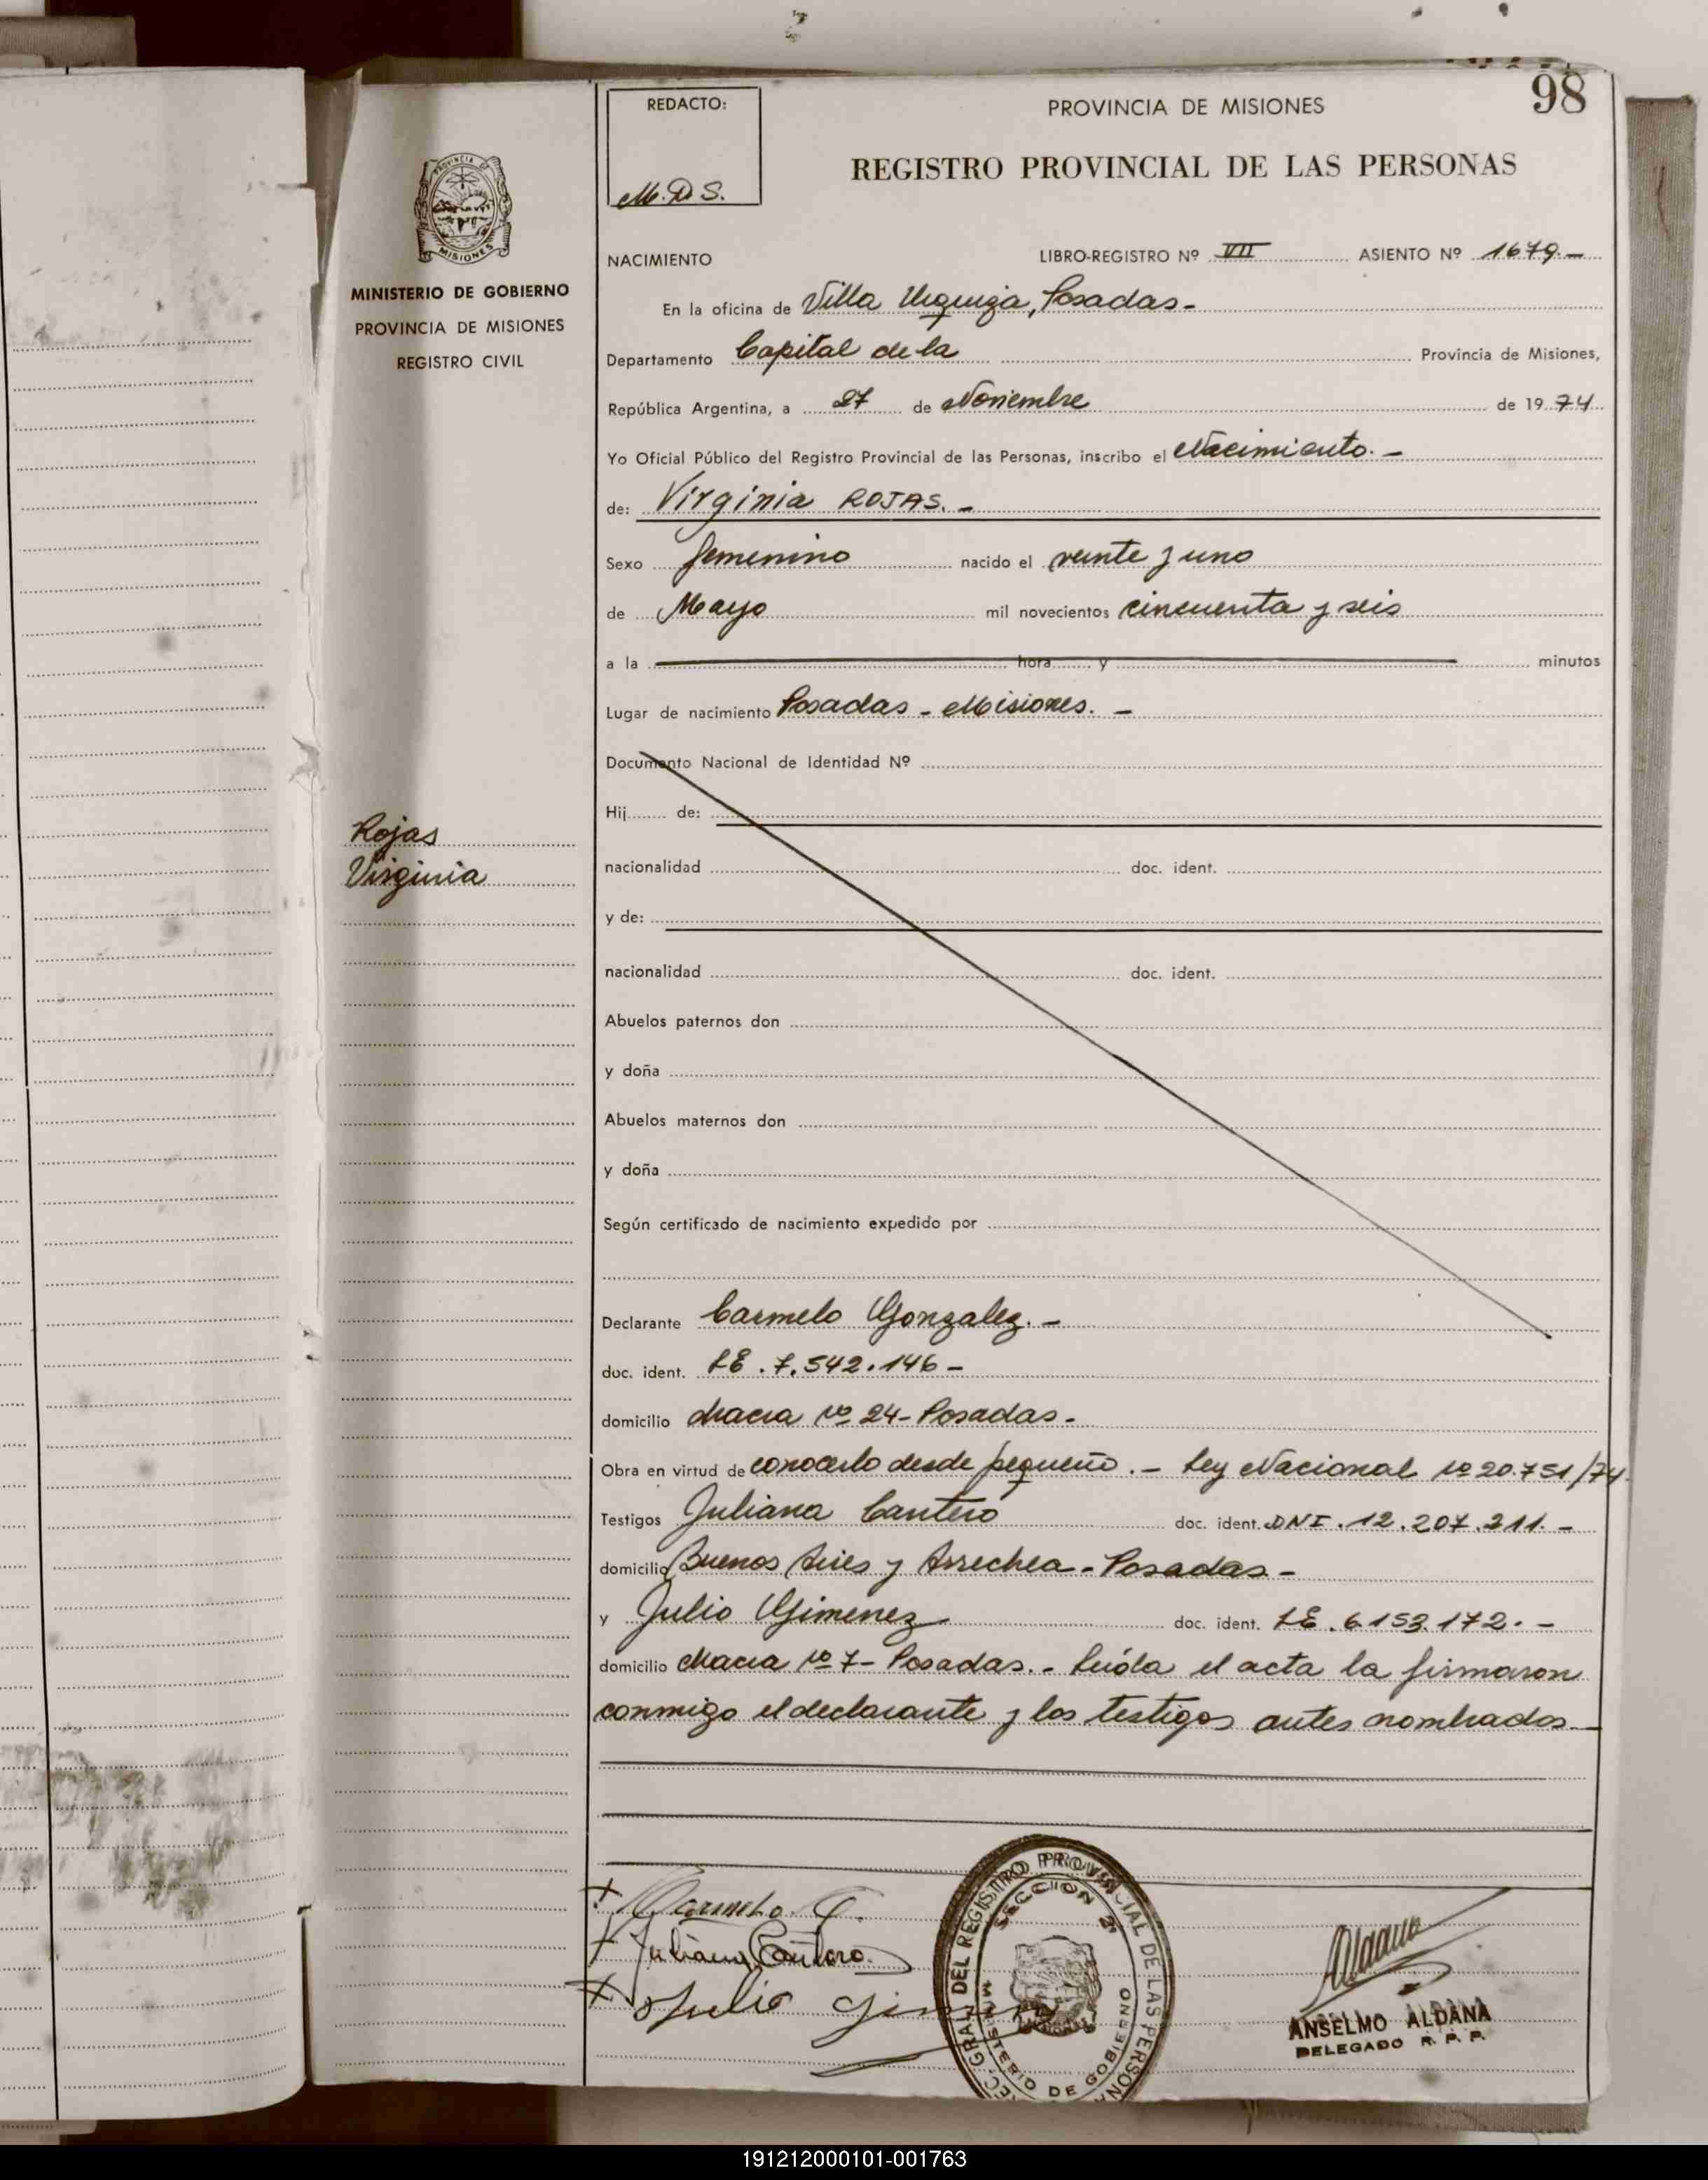 98
REDACTO:
M.D.S.
PROVINCIA DE MISIONES
REGISTRO PROVINCIAL DE LAS PERSONAS
PROVINCIA DE
MISIONES
MINISTERIO DE GOBIERNO
PROVINCIA DE MISIONES
REGISTRO CIVIL
Rojas
Virginia
NACIMIENTO LIBRO-REGISTRO Nº VII ASIENTO Nº 1679.-
En la oficina de Villa Urquiza, Posadas-
Departamento Capital de la Provincia de Misiones,
República Argentina, a 27 de Noviembre de 19 74
Yo Oficial Público del Registro Provincial de las Personas, inscribo el Nacimiento.-
de: Virginia ROJAS.-
Sexo femenino nacido el veinte y uno
de Mayo mil novecientos cincuenta y seis
a la hora y minutos
Lugar de nacimiento Posadas - Misiones. -
Documento Nacional de Identidad Nº
Hij de:
nacionalidad doc. ident.
y de:
nacionalidad doc. ident.
Abuelos paternos don
y doña
Abuelos maternos don
y doña
Según certificado de nacimiento expedido por
Declarante Carmelo Gonzalez.-
doc. ident. LE.7.542.146-
domicilio chacra nº 24- Posadas-
Obra en virtud de conocerlo desde pequeño.- Ley Nacional nº 20.751/74.
Testigos Juliana Cantero doc. ident. DNI.12.207.211.-
domicilio Buenos Aires y Arrechea- Posadas-
y Julio Gimenez doc. ident. LE.6.153.172.-
domicilio chacra nº 7- Posadas.- Leída el acta la firmaron
conmigo el declarante y los testigos antes nombrados
Carmelo G.
Juliana Cantero.
Julio Gimenez
GRAL DEL REGISTRO PROVINCIAL DE LAS PERSON
SECCION 2ª
MINISTERIO DE GOBIERNO
Aldana
ANSELMO ALDANA
DELEGADO R. P. P.
191212000101-001763